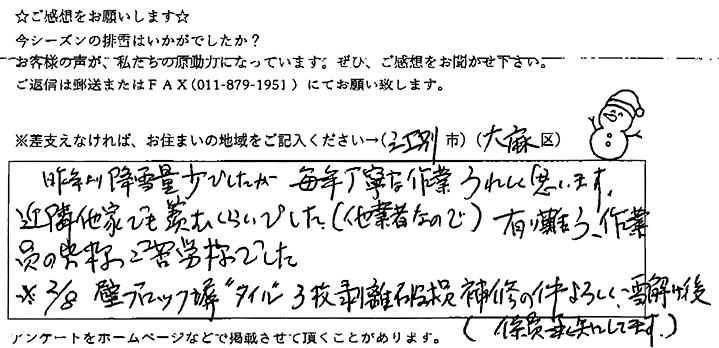 ☆ご感想をお願いします☆
今シーズンの排雪はいかがでしたか？
お客様の声が、私たちの原動力になっています。ぜひ、ご感想をお聞かせ下さい。
ご返信は郵送またはＦＡＸ(011-879-1951）にてお願い致します。
※差支えなければ、お住まいの地域をご記入ください→(江別 市）(大麻 区）
昨年より降雪量少でしたが 毎年丁寧な作業 うれしく思います。
近隣他家でも羨むくらいでした。(他業者なので) 有り難う、作業
員の皆様。ご苦労様でした
※ 2/8 壁ブロック塀 "タイル" 3枚剥離破損 補修の件よろしく、雪解け後
(係員承知してます。)
アンケートをホームページなどで掲載させて頂くことがあります。